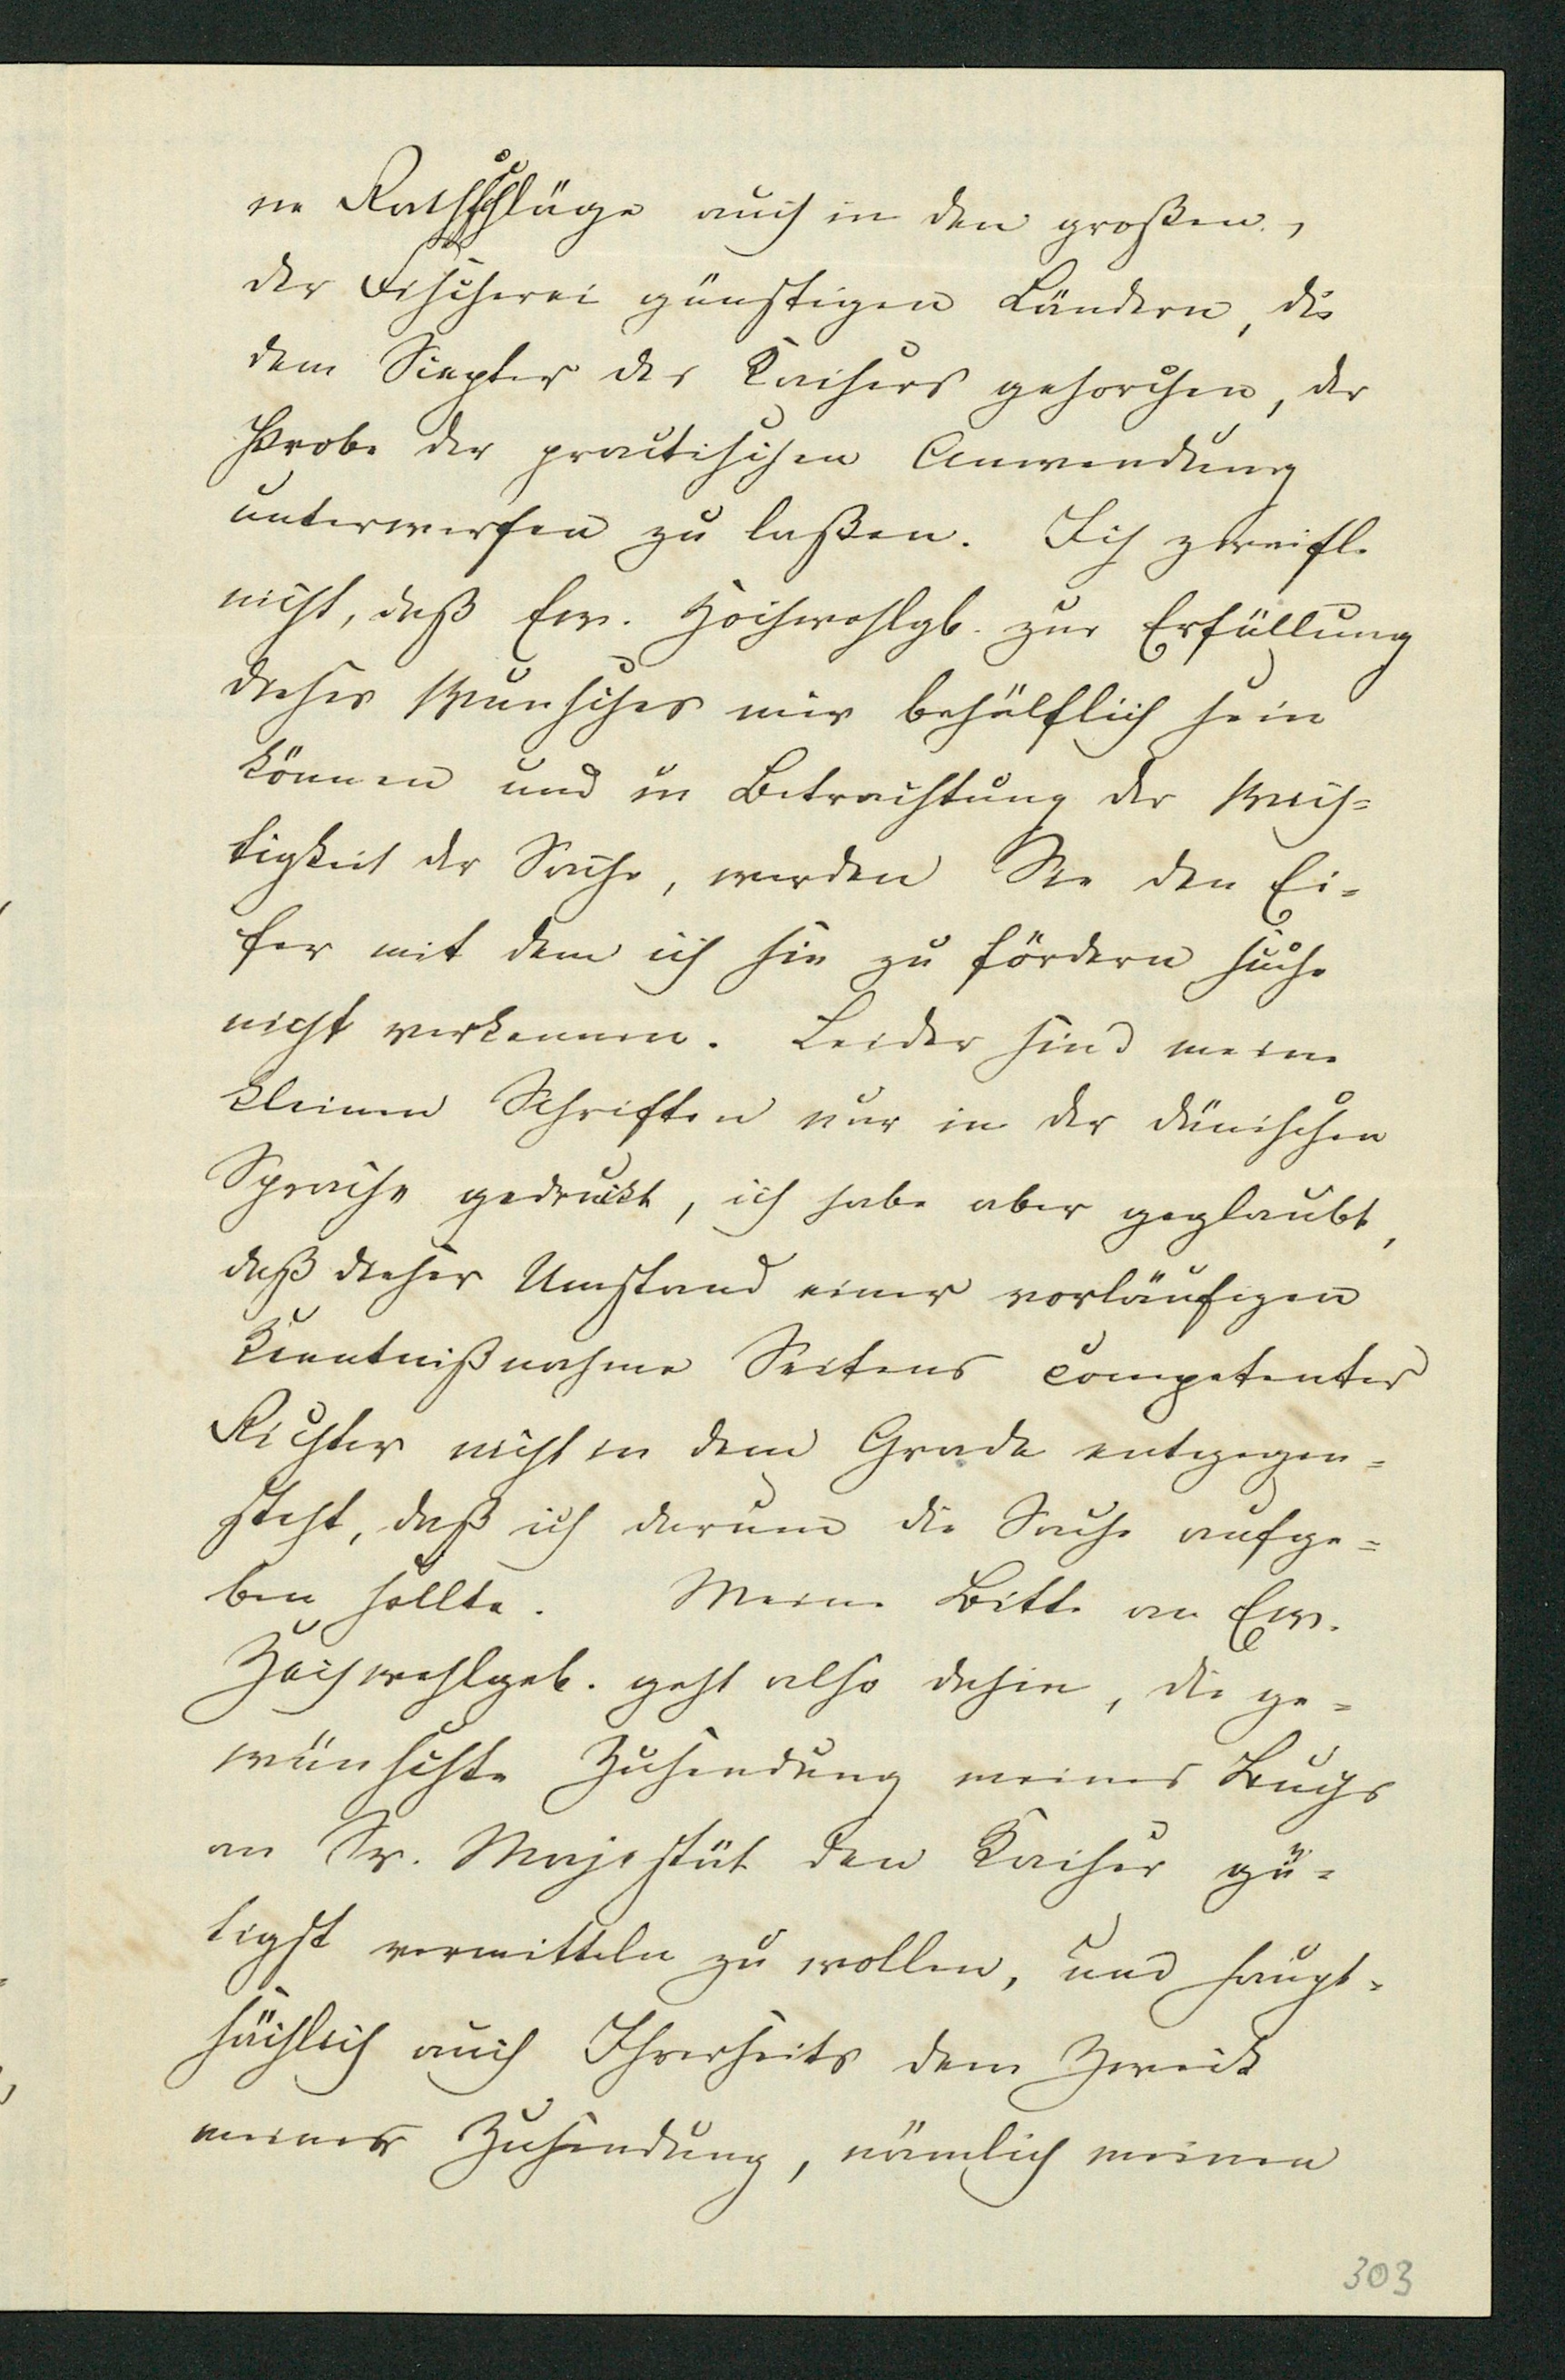 ne Rathschläge auch in den großen,
der Fischerei günstigen Ländern, die
dem Scepter des Kaisers gehorchen, der
Probe der practischen Anwendung
unterwerfen zu laßen. Ich zweifle
nicht, daß Ew. Hochwohlgb. zur Erfüllung
dieses Wunsches mir behülflich sein
können und in Betrachtung der Wich-
tigkeit der Sache, werden Sie den Ei-
fer mit dem ich sie zu fördern suche
nicht verkennen. Leider sind meine
kleinen Schriften nur in der dänischen
Sprache gedruckt, ich habe aber geglaubt,
daß dieser Umstand einer vorläufigen
Kenntnißnahme Seitens competenter
Richter nicht in dem Grade entgegen-
steht, daß ich darum die Sache aufge-
ben sollte. Meine Bitte an Ew.
Hochwohlgeb. geht also dahin, die ge-
wünschte Zusendung meines Buchs
an Sr. Majestät den Kaiser gü-
tigst vermitteln zu wollen, und haupt-
sächlich auch Ihrerseits dem Zweck
meiner Zusendung, nämlich meinen
303